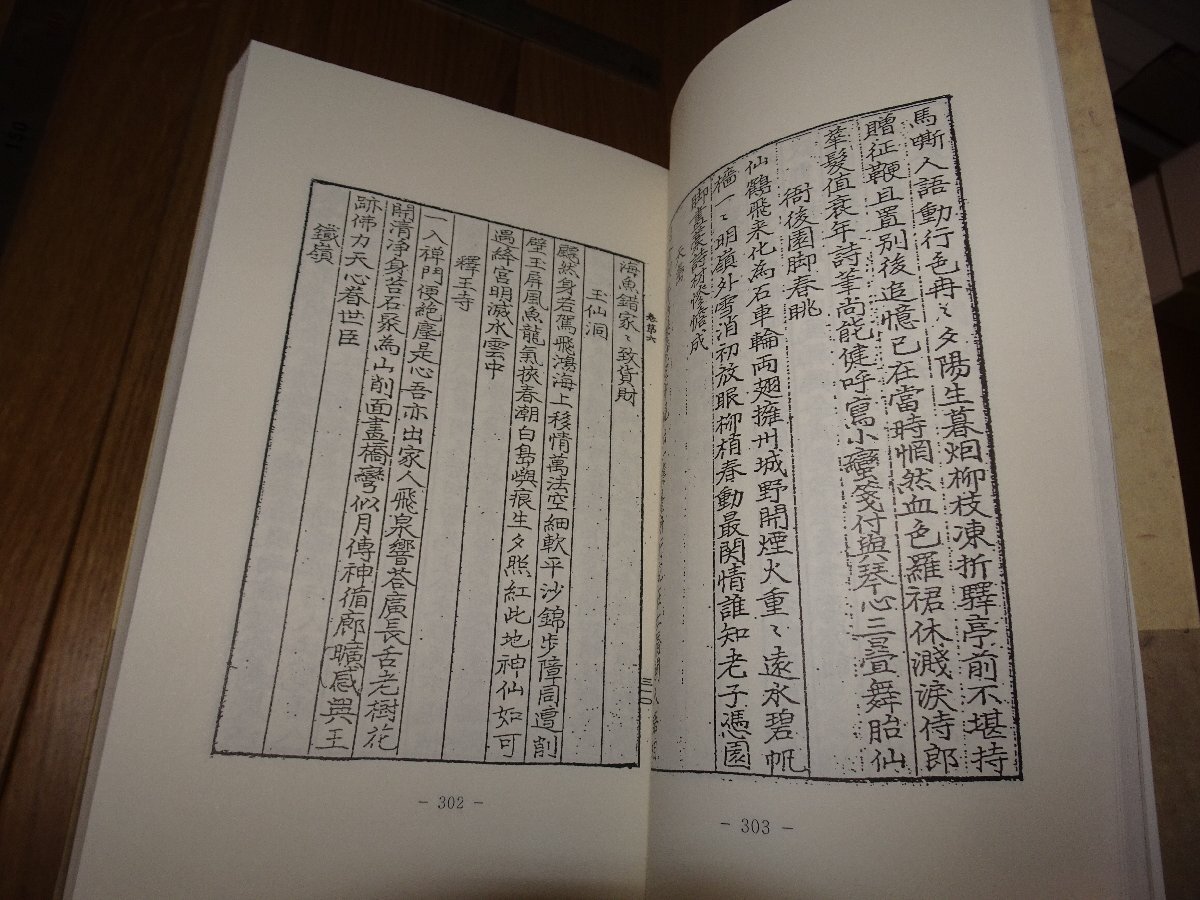 海魚錯家〻致貨財
玉仙洞
飄然身若駕飛鴻海上移情萬法空細軟平沙錦步障同邊削
壁玉屏風魚龍氣挾春潮白島嶼痕生夕照紅此地神仙如可
遇絳宮明滅水雲中
釋王寺
一入禪門便絶塵是心吾亦出家人飛泉響荅廣長舌老樹花
開清淨身苔石聚為山削面畫橋彎似月傳神循廊曠感興王
跡佛力天心眷世臣
鐵嶺
卷第六
三一〇
- 302 -
馬嘶人語動行色冉〻夕陽生暮烟柳枝凍折驛亭前不堪持
贈征鞭且置別後追憶已在當時惘然血色羅裙休濺淚侍郎
華髮值衰年詩筆尚能健呼寫小蠻箋付與琴心三疊舞胎仙
衙後園脚春眺
仙鶴飛來化為石車輪兩翅擁州城野開煙火重〻遠水碧帆
檣一〻明嶺外雪消初放眼柳梢春動最関情誰知老子憑園
脚
成
- 303 -